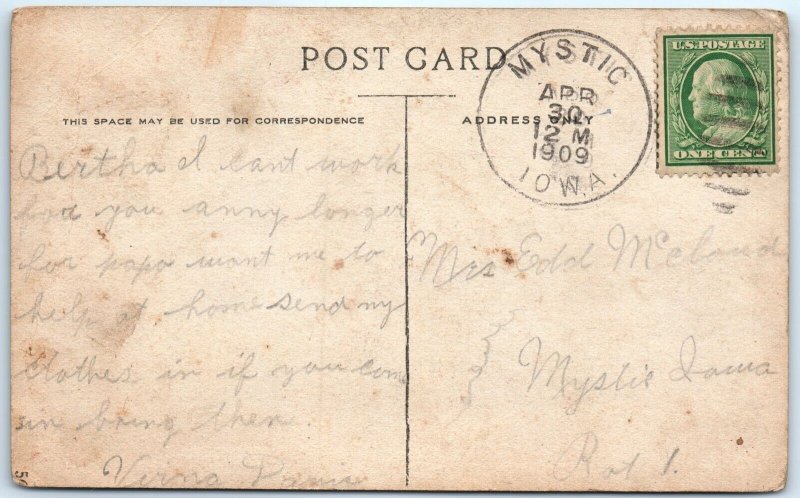 POST CARD
THIS SPACE MAY BE USED FOR CORRESPONDENCE
ADDRESS ONLY
MYSTIC
APR
30
12 M
1909
IOWA.
U.S. POSTAGE
ONE CENT
Bertha I cant work
for you anny longer
for papa want me to
help at home send my
clothes in if you come
in bring then.
Verna Davis
Mrs Edd McCloud
Mystic Iowa
Rot 1.